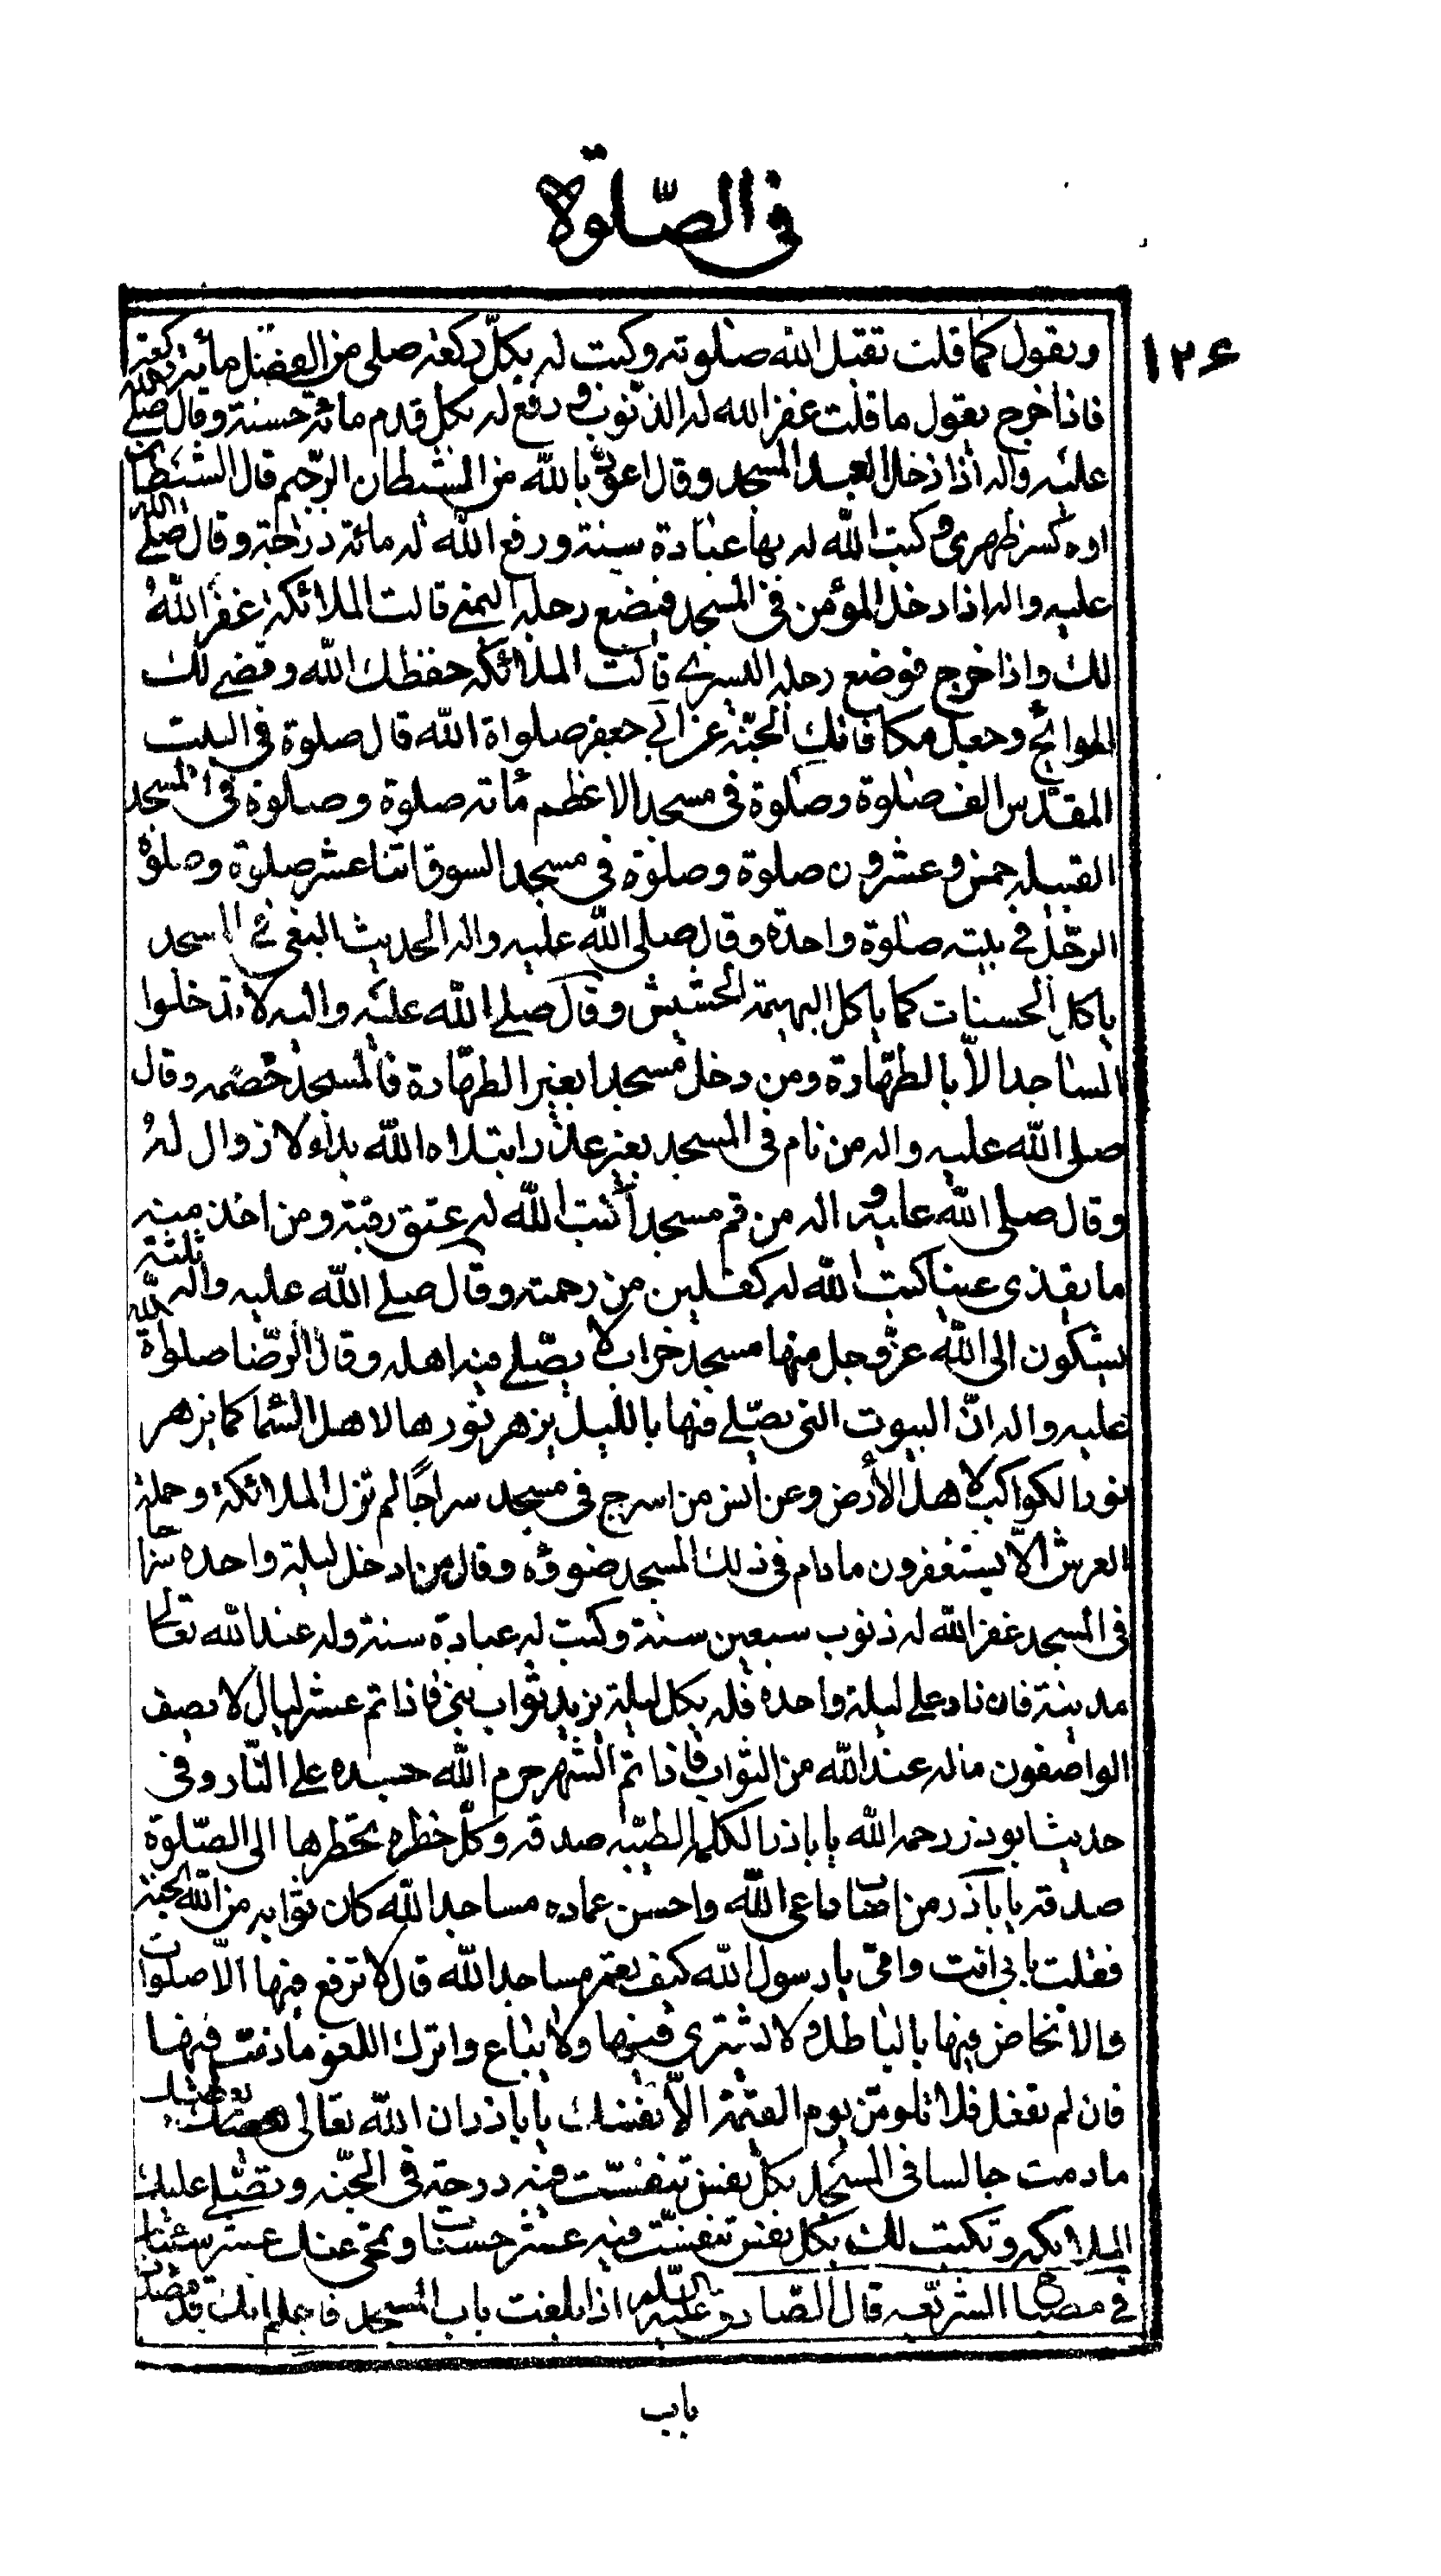 فى الصّلوة
١٢۶
ويقول كما قلت تقبل الله صلوته وكتب له بكلّ ركعة صلى من الفضل مائة ركعة
فاذا خرج يقول ما قلت غفر الله له الذنوب ورفع له بكل قدم مائة درجة حسنة وقال صلى الله
عليه واله اذا دخل العبد المسجد وقال اعوذ بالله من الشيطان الرّجيم قال الشيطان
اوه كسر ظهرى وكتب الله له بها عبادة سنة ورفع الله له مائة درجة وقال صلى الله
عليه واله اذا دخل المؤمن فى المسجد فيضع رجله اليمنى قالت الملائكة غفر الله
لك واذا خرج فوضع رجله اليسرى قالت الملائكة حفظك الله وقضى لك
الحوائج وجعل مكافاتك الجنّة عن ابى جعفر صلواة الله قال صلوة فى البيت
المقدّس الف صلوة وصلوة فى مسجد الاعظم مائة صلوة وصلوة فى المسجد
القبيلة خمس وعشرون صلوة وصلوة فى مسجد السوق اثنا عشر صلوة وصلوة
الرّجل فى بيته صلوة واحدة وقال صلى الله عليه واله الحديث البغى فى المسجد
ياكل الحسنات كما ياكل البهيمة الحشيش وقال صلى الله عليه واليه لا تدخلوا
المساجد الّا بالطهّارة ومن دخل مسجدا بغير الطهّارة فالمسجد خصمه وقال
صلى الله عليه واله من نام فى المسجد بغير عذر ابتلاه الله بداء لا زوال له
وقال صلى الله عليه واله من قم مسجداً كتب الله له عتق رقبة ومن اخذ منه
ما يقذى عينا كتب الله له كفلين من رحمته وقال صلى الله عليه واله ثلثة
يشكون الى الله عزّ وجل منها مسجد خراب لا يصّلى فيه اهله وقال الرّضا صلواة الله
عليه واله انّ البيوت التى يصّلى فيها بالليل يزهر نورها لاهل السّما كما يزهر
نور الكواكب لاهل الأرض وعن انس من اسرج فى مسجد سراجًا لم تزل الملائكة وحملة
العرش الّا يستغفرون مادام فى ذلك المسجد ضوؤه وقال من ادخل ليلة واحده سراجا
فى المسجد غفر الله له ذنوب سبعين سنة وكتب له عبادة سنة وله عند الله تعالى
مدينة فان زاد على ليلة واحده فله بكل ليلة يزيد ثواب نبى فاذا تم عشر ليال لا يصف
الواصفون ماله عند الله من الثواب فاذا تمّ الشهر حرم الله جسده على النّار وفى
حديث ابوذر رحمه الله يا باذر الكلمة الطيّبه صدقه وكلّ خطوه تخطوها الى الصّلوة
صدقه يا باذر من اجاب داعى الله واحسن عماره مساجد الله كان ثوابه من الله الجنة
فقلت بابى انت وامّى يا رسول الله كيف نعمر مساجد الله قال لا ترفع فيها الاصلوات
ولا تخاض فيها بالباطل ولا تشترى فيها ولا تباع واترك اللغو مادمت فيها
فان لم تفعل فلا تلومنّ يوم القيمة الّا نفسك يا باذر ان الله تعالى يعطيك
مادمت جالسا فى المسجد بكل نفس تنفسّت فيه درجة فى الجنّه وتصّلى عليك
الملائكه وتكتب لك بكل نفس تنفسّت فيه عشر حسنات ويمحى عنك عشر سيّئات
فى مصباح الشريعه قال الصّادق عليه السّلم اذا بلغت باب المسجد فاعلم انك قد قصدت
باب